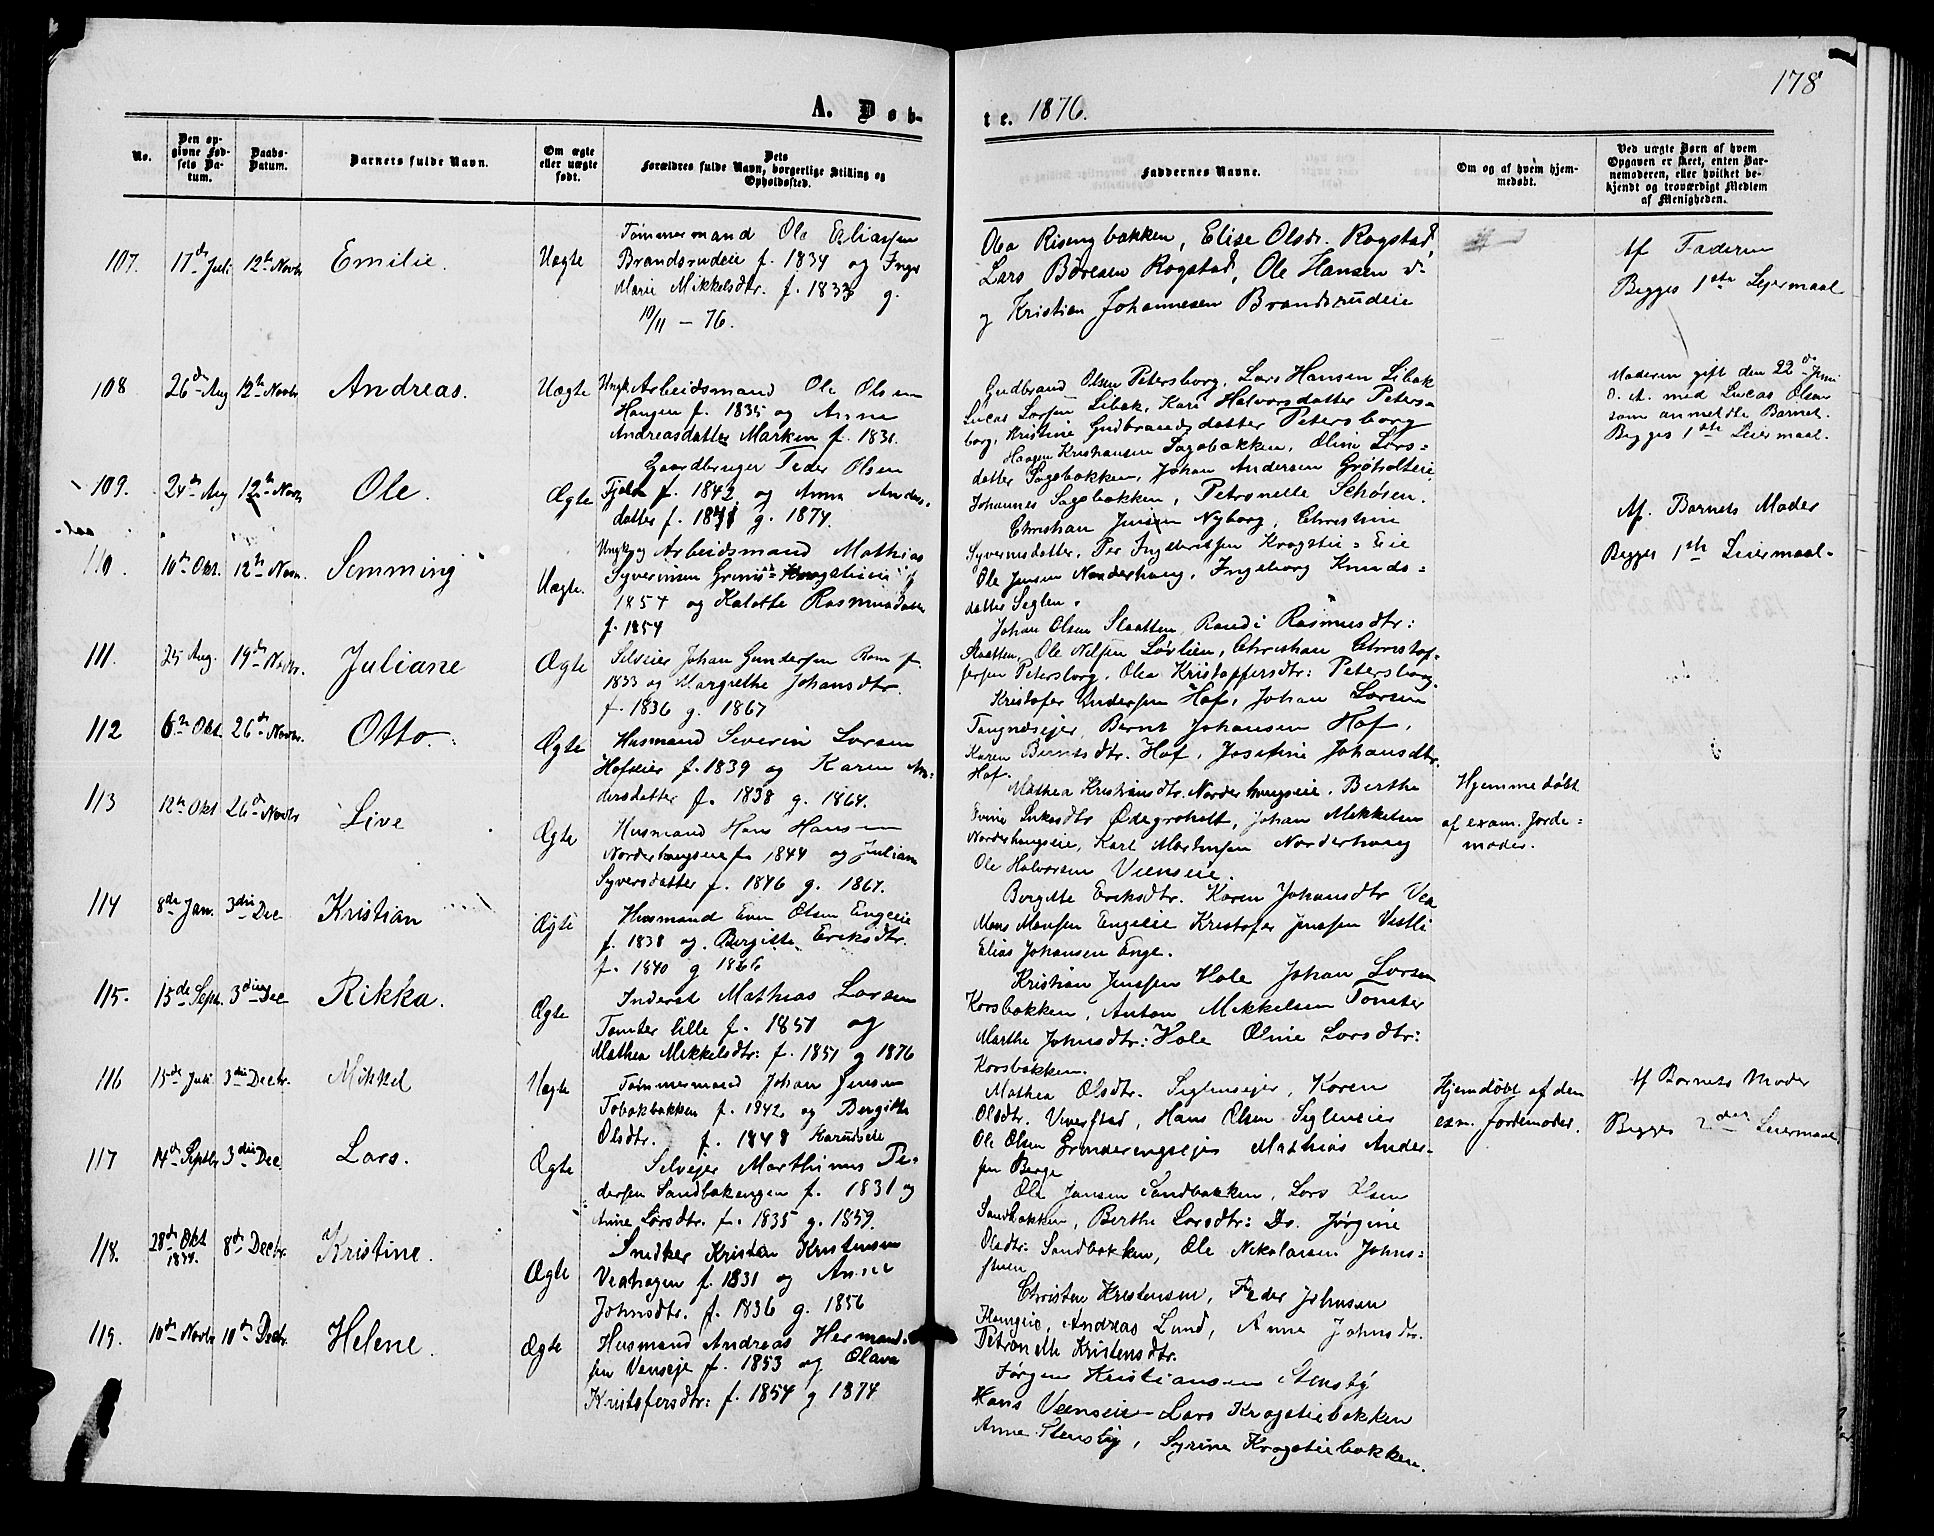 178
A. Døb-
te. 1876.
No.
Den op-
givne Fød-
sels Da-
tum.
Daabs-
Datum.
Barnets fulde Navn.
Om ægte
eller uægte
født.
Dets
Forældres fulde Navn, borgerlige Stilling og
Opholdssted.
Faddernes Navne.
Om og af hvem hjem-
medøbt.
Ved uægte Børn af hvem
Opgaven er skeet, enten Bar-
nemoderen, eller hvilket be-
kjendt og troværdigt Medlem
af Menigheden.
107. 17de Juli 12te Novbr Emilie. Uægte
Tømmermand Ole Eliassen
Brandsrudeie f. 1834 og Inger
Marie Mikkelsdtr. f. 1833 g.
10/11 - 76.
Olea Risengbakken, Elise Olsdr. Rogstad,
Lars Børesen Rogstad, Ole Hansen do
og Kristian Johannesen Brandsrudeie
Af Faderen
Begges 1ste Leiermaal
108 26de Aug 12te Novbr Andreas. Uægte
Ungk. Arbeidsmand Ole Olsen
Haugen f. 1835 og Anne
Andreasdatter Marken f. 1831.
Gudbrand Olsen Petersborg, Lars Hansen Libak
Lucas Larsen Libak, Kari Halvorsdatter Peters-
borg, Kristine Gudbrandsdatter Petersborg
Moderen gift den 22de Juni
d. A. med Lucas Olsen
som anmeldte Barnet.
Begges 1ste Leiermaal.
109. 24de Aug 12te Novbr Ole. Ægte
Gaardbruger Peder Olsen
f. 1842 og Anne Anders-
datter f. 1841 g. 1874.
Haagen Kristiansen Sagobakken, Oline Lars-
datter Sagobakken, Johan Andersen Grøholteie
Johannes Sagobakken, Petronelle Schøien.
Af. Barnets Moder
110. 10de Okt. 12te Novbr. Semming Uægte.
Ungk. og Arbeidsmand Mathias
Syverinsen
1854 og Kalotte Rasmusdatter
f. 1854
Christian Jensen Nyborg, Christine
Syversdatter, Per Ingebretsen Krogstie-Eie
Ole Jensen Norderhaug, Ingeborg Knuds-
datter Seglen.
Begges 1ste Leiermaal.
111. 25 Aug. 19de Novbr. Juliane Ægte
Selveier Johan Gundersen Ram f.
1833 og Margrethe Johansdtr.
f. 1836 g. 1867
Johan Olsen Slaatten, Randi Rasmusdtr:
Slaatten, Ole Nilsen Lørlien, Christian Christof-
fersen Petersborg, Olea Kristoffersdtr: Petersborg.
112 6te Okt. 26de Novbr. Otto. Ægte
Husmand Severin Larsen
Hofseier f. 1839 og Karen An-
dersdatter f. 1838 g. 1864.
Kristofer Andersen Hof, Johan Larsen
Tangnæsejer, Bernt Johansen Hof,
Karen Berntsdtr. Hof, Josefine Johansdtr.
Hof.
113 12te Okt 26de Novbr Live Ægte
Husmand Hans Hansen
Norderhaugseie f. 1844 og Julian
Syversdatter f. 1846 g. 1864.
Mathea Kristiansdtr. Norderhaugseie, Berthe
Evine Lukasdtr Ødegroholt, Johan Mikkelsen
Norderhaugseie, Karl Martinsen Norderhaug
Ole Halvorsen Veenseie.
Hjemmedøbt
af exam. Jorde-
moder.
114 8de Jan. 3die Dec Kristian Ægte
Husmand Even Olsen Engeeie
f. 1838 og Bergitte Eriksdtr.
f. 1840 g 1866
Bergitte Eriksdtr. Karen Johansdtr Vea
Mons Monsen Engeeie Kristofer Jensen Vestli
Elias Johansen Enge.
115. 15de Sept. 3die Dec Rikka. Ægte
Inderst Mathias Larsen
Tomter lille f. 1851 og
Mathea Mikkelsdtr: f. 1851 g 1876
Kristian Jensen Hole Johan Larsen
Korsbakken, Anton Mikkelsen Tomter
Marthe Johnsdtr: Hole Oline Larsdtr:
Korsbakken.
116 15de Juli 3die Decbr. Mikkel Uægte
Tømmermand Johan Jensen
Tobakbakken f. 1842 og Bergitte
Olsdtr. f. 1848
Mathea Olsdtr. Seglensejer, Karen
Olsdtr. Hans Olsen Seglensejer
Ole Olsen Mathias Ander-
sen Berge
Hjemdøbt af den
exm. Jordemoder.
Af Barnets Moder
Begges 2det Leiermaal
117 14de Septbr 3die Dec. Lars. Ægte
Selvejer Marthinus Pe-
dersen Sandbakengen f. 1831 og
Anne Larsdtr. f. 1835 g. 1859.
Ole Jansen Sandbakken, Lars Olsen
Sandbakken, Berthe Larsdtr: Do. Jørgine
Olsdtr: Sandbakken, Ole Nikolaisen Johns-
118. 28de Okt. 1874. 8de Decbr. Kristine. Ægte
Snedker Kristen Kristensen
Veahagen f. 1831 og Anne
Johnsdtr. f. 1836 g. 1856
Christen Kristensen, Peder Johnsen
Haugeie, Andreas Lund, Anne Johnsdtr.
Petronelle Kristensdtr.
119. 10de Novbr 10de Decbr. Helene. Ægte
Husmand Andreas Herman-
sen Venseje f. 1853 og Olava
Kristofersdtr: f. 1854 g 1874
Jørgen Kristiansen Stensby
Hans Veenseie - Lars Krogstiebakken
Anne Stensby, Syrine Krogstiebakken.